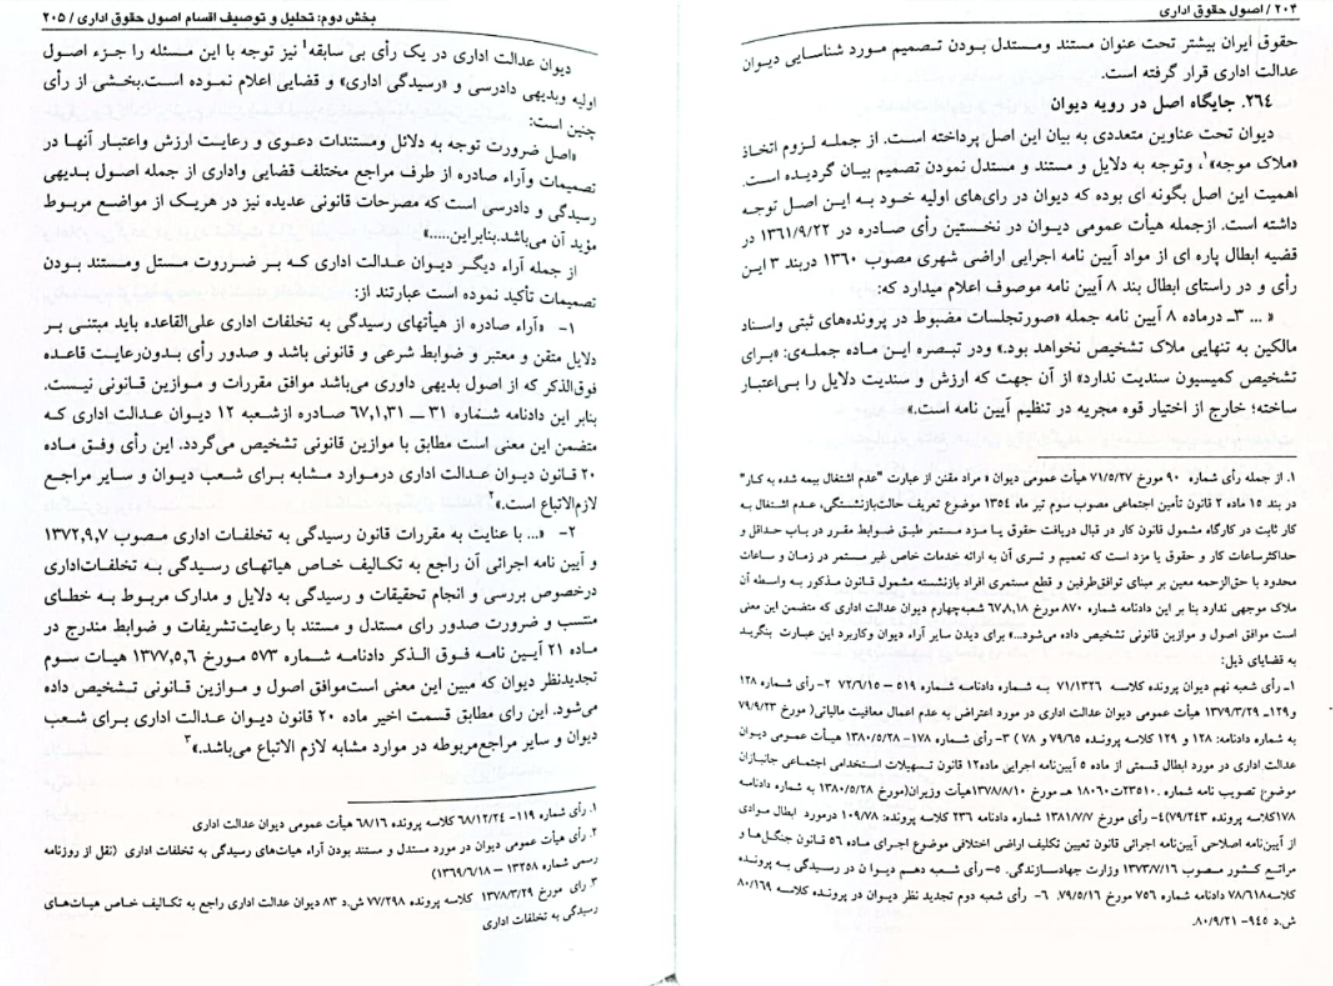 ۲۰۴ / اصول حقوق اداری
حقوق ایران بیشتر تحت عنوان مستند ومستدل بودن تصمیم مورد شناسایی دیوان
عدالت اداری قرار گرفته است.
۲۶۴. جایگاه اصل در رویه دیوان
دیوان تحت عناوین متعددی به بیان این اصل پرداخته است. از جمله لزوم اتخاذ
«ملاک موجه»۱، وتوجه به دلایل و مستند و مستدل نمودن تصمیم بیان گردیده است.
اهمیت این اصل بگونه ای بوده که دیوان در رای‌های اولیه خود به این اصل توجه
داشته است. ازجمله هیأت عمومی دیوان در نخستین رأی صادره در ۱۳۶۱/۹/۲۲ در
قضیه ابطال پاره ای از مواد آیین نامه اجرایی اراضی شهری مصوب ۱۳۶۰ دربند ۳ این
رأی و در راستای ابطال بند ۸ آیین نامه موصوف اعلام میدارد که:
« ... ۳ـ درماده ۸ آیین نامه جمله «صورتجلسات مضبوط در پرونده‌های ثبتی واسناد
مالکین به تنهایی ملاک تشخیص نخواهد بود.» ودر تبصره این ماده جمله‌ی: «برای
تشخیص کمیسیون سندیت ندارد» از آن جهت که ارزش و سندیت دلایل را بی‌اعتبار
ساخته؛ خارج از اختیار قوه مجریه در تنظیم آیین نامه است.»
۱. از جمله رأی شماره ۹۰ مورخ ۷۱/۵/۲۷ هیأت عمومی دیوان « مراد مقنن از عبارت "عدم اشتغال بیمه شده به کار"
در بند ۱۵ ماده ۲ قانون تأمین اجتماعی مصوب سوم تیر ماه ۱۳۵۴ موضوع تعریف حالت‌بازنشستگی، عدم اشتغال به
کار ثابت در کارگاه مشمول قانون کار در قبال دریافت حقوق یا مزد مستمر طبق ضوابط مقرر در باب حداقل و
حداکثرساعات کار و حقوق یا مزد است که تعمیم و تسری آن به ارائه خدمات خاص غیر مستمر در زمان و ساعات
محدود با حق‌الزحمه معین بر مبنای توافق‌طرفین و قطع مستمری افراد بازنشسته مشمول قانون مذکور به واسطه آن
ملاک موجهی ندارد بنا بر این دادنامه شماره ۸۷۰ مورخ ۶۷،۸،۱۸ شعبه‌چهارم دیوان عدالت اداری که متضمن این معنی
است موافق اصول و موازین قانونی تشخیص داده می‌شود..» برای دیدن سایر آراء دیوان وکاربرد این عبارت بنگرید
به قضایای ذیل:
۱ـ رأی شعبه نهم دیوان پرونده کلاسه ۷۱/۱۳۲۶ به شماره دادنامه شماره ۵۱۹ – ۷۲/۶/۱۵ ۲- رأی شماره ۱۲۸
و۱۲۹ـ ۱۳۷۹/۳/۲۹ هیأت عمومی دیوان عدالت اداری در مورد اعتراض به عدم اعمال معافیت مالیاتی( مورخ ۷۹/۹/۲۳
به شماره دادنامه: ۱۲۸ و ۱۲۹ کلاسه پرونده ۷۹/۶۵ و ۷۸ ) ۳- رأی شماره ۱۷۸- ۱۳۸۰/۵/۲۸ هیأت عمومی دیوان
عدالت اداری در مورد ابطال قسمتی از ماده ۵ آیین‌نامه اجرایی ماده۱۲ قانون تسهیلات استخدامی اجتماعی جانبازان
موضوع تصویب نامه شماره .۲۳۵۱۰ت۱۸۰۶۰ هـ مورخ ۱۳۷۸/۸/۱۰هیأت وزیران(مورخ ۱۳۸۰/۵/۲۸ به شماره دادنامه
۱۷۸کلاسه پرونده ۷۹/۲۴۳)۴- رأی مورخ ۱۳۸۱/۷/۷ شماره دادنامه ۲۳۶ کلاسه پرونده: ۱۰۹/۷۸ درمورد ابطال موادی
از آیین‌نامه اصلاحی آیین‌نامه اجرائی قانون تعیین تکلیف اراضی اختلافی موضوع اجرای ماده ۵۶ قانون جنگل‌ها و
مراتع کشور مصوب ۱۳۷۳/۷/۱۶ وزارت جهادسازندگی. ۵– رأی شعبه دهم دیوا ن در رسیدگی به پرونده
کلاسه۷۸/۶۱۸ دادنامه شماره ۷۵۶ مورخ ۷۹/۵/۱۶. ۶- رأی شعبه دوم تجدید نظر دیوان در پرونده کلاسه ۸۰/۱۶۹
ش.د ۹۴۵- ۸۰/۹/۲۱.
بخش دوم: تحلیل و توصیف اقسام اصول حقوق اداری / ۲۰۵
دیوان عدالت اداری در یک رأی بی سابقه۱ نیز توجه با این مسئله را جزء اصول
اولیه وبدیهی دادرسی و «رسیدگی اداری» و قضایی اعلام نموده است.بخشی از رأی
چنین است:
«اصل ضرورت توجه به دلائل ومستندات دعوی و رعایت ارزش واعتبار آنها در
تصمیمات وآراء صادره از طرف مراجع مختلف قضایی واداری از جمله اصول بدیهی
رسیدگی و دادرسی است که مصرحات قانونی عدیده نیز در هریک از مواضع مربوط
مؤید آن می‌باشد.بنابراین.....»
از جمله آراء دیگر دیوان عدالت اداری که بر ضرروت مستل ومستند بودن
تصمیمات تأکید نموده است عبارتند از:
۱- «آراء صادره از هیأتهای رسیدگی به تخلفات اداری علی‌القاعده باید مبتنی بر
دلایل متقن و معتبر و ضوابط شرعی و قانونی باشد و صدور رأی بدون‌رعایت قاعده
فوق‌الذکر که از اصول بدیهی داوری می‌باشد موافق مقررات و موازین قانونی نیست.
بنابر این دادنامه شماره ۳۱ – ۶۷،۱،۳۱ صادره ازشعبه ۱۲ دیوان عدالت اداری که
متضمن این معنی است مطابق با موازین قانونی تشخیص می‌گردد. این رأی وفق ماده
۲۰ قانون دیوان عدالت اداری درموارد مشابه برای شعب دیوان و سایر مراجع
لازم‌الاتباع است.»۲
۲- «... با عنایت به مقررات قانون رسیدگی به تخلفات اداری مصوب ۱۳۷۲،۹،۷
و آیین نامه اجرائی آن راجع به تکالیف خاص هیاتهای رسیدگی به تخلفات‌اداری
درخصوص بررسی و انجام تحقیقات و رسیدگی به دلایل و مدارک مربوط به خطای
منتسب و ضرورت صدور رای مستدل و مستند با رعایت‌تشریفات و ضوابط مندرج در
ماده ۲۱ آیین نامه فوق الذکر دادنامه شماره ۵۷۳ مورخ ۱۳۷۷،۵،۶ هیات سوم
تجدیدنظر دیوان که مبین این معنی است‌موافق اصول و موازین قانونی تشخیص داده
می‌شود. این رای مطابق قسمت اخیر ماده ۲۰ قانون دیوان عدالت اداری برای شعب
دیوان و سایر مراجع‌مربوطه در موارد مشابه لازم الاتباع می‌باشد.»۳
۱. رأی شماره ۱۱۹- ۶۸/۱۲/۲۴ کلاسه پرونده ۶۸/۱۶ هیأت عمومی دیوان عدالت اداری
۲. رأی هیأت عمومی دیوان در مورد مستدل و مستند بودن آراء هیات‌های رسیدگی به تخلفات اداری (نقل از روزنامه
رسمی شماره ۱۳۲۵۸ – ۱۳۶۹/۶/۱۸)
۳. رای مورخ ۱۳۷۸/۳/۲۹ کلاسه پرونده ۷۷/۲۹۸ ش.د ۸۳ دیوان عدالت اداری راجع به تکالیف خاص هیات‌های
رسیدگی به تخلفات اداری